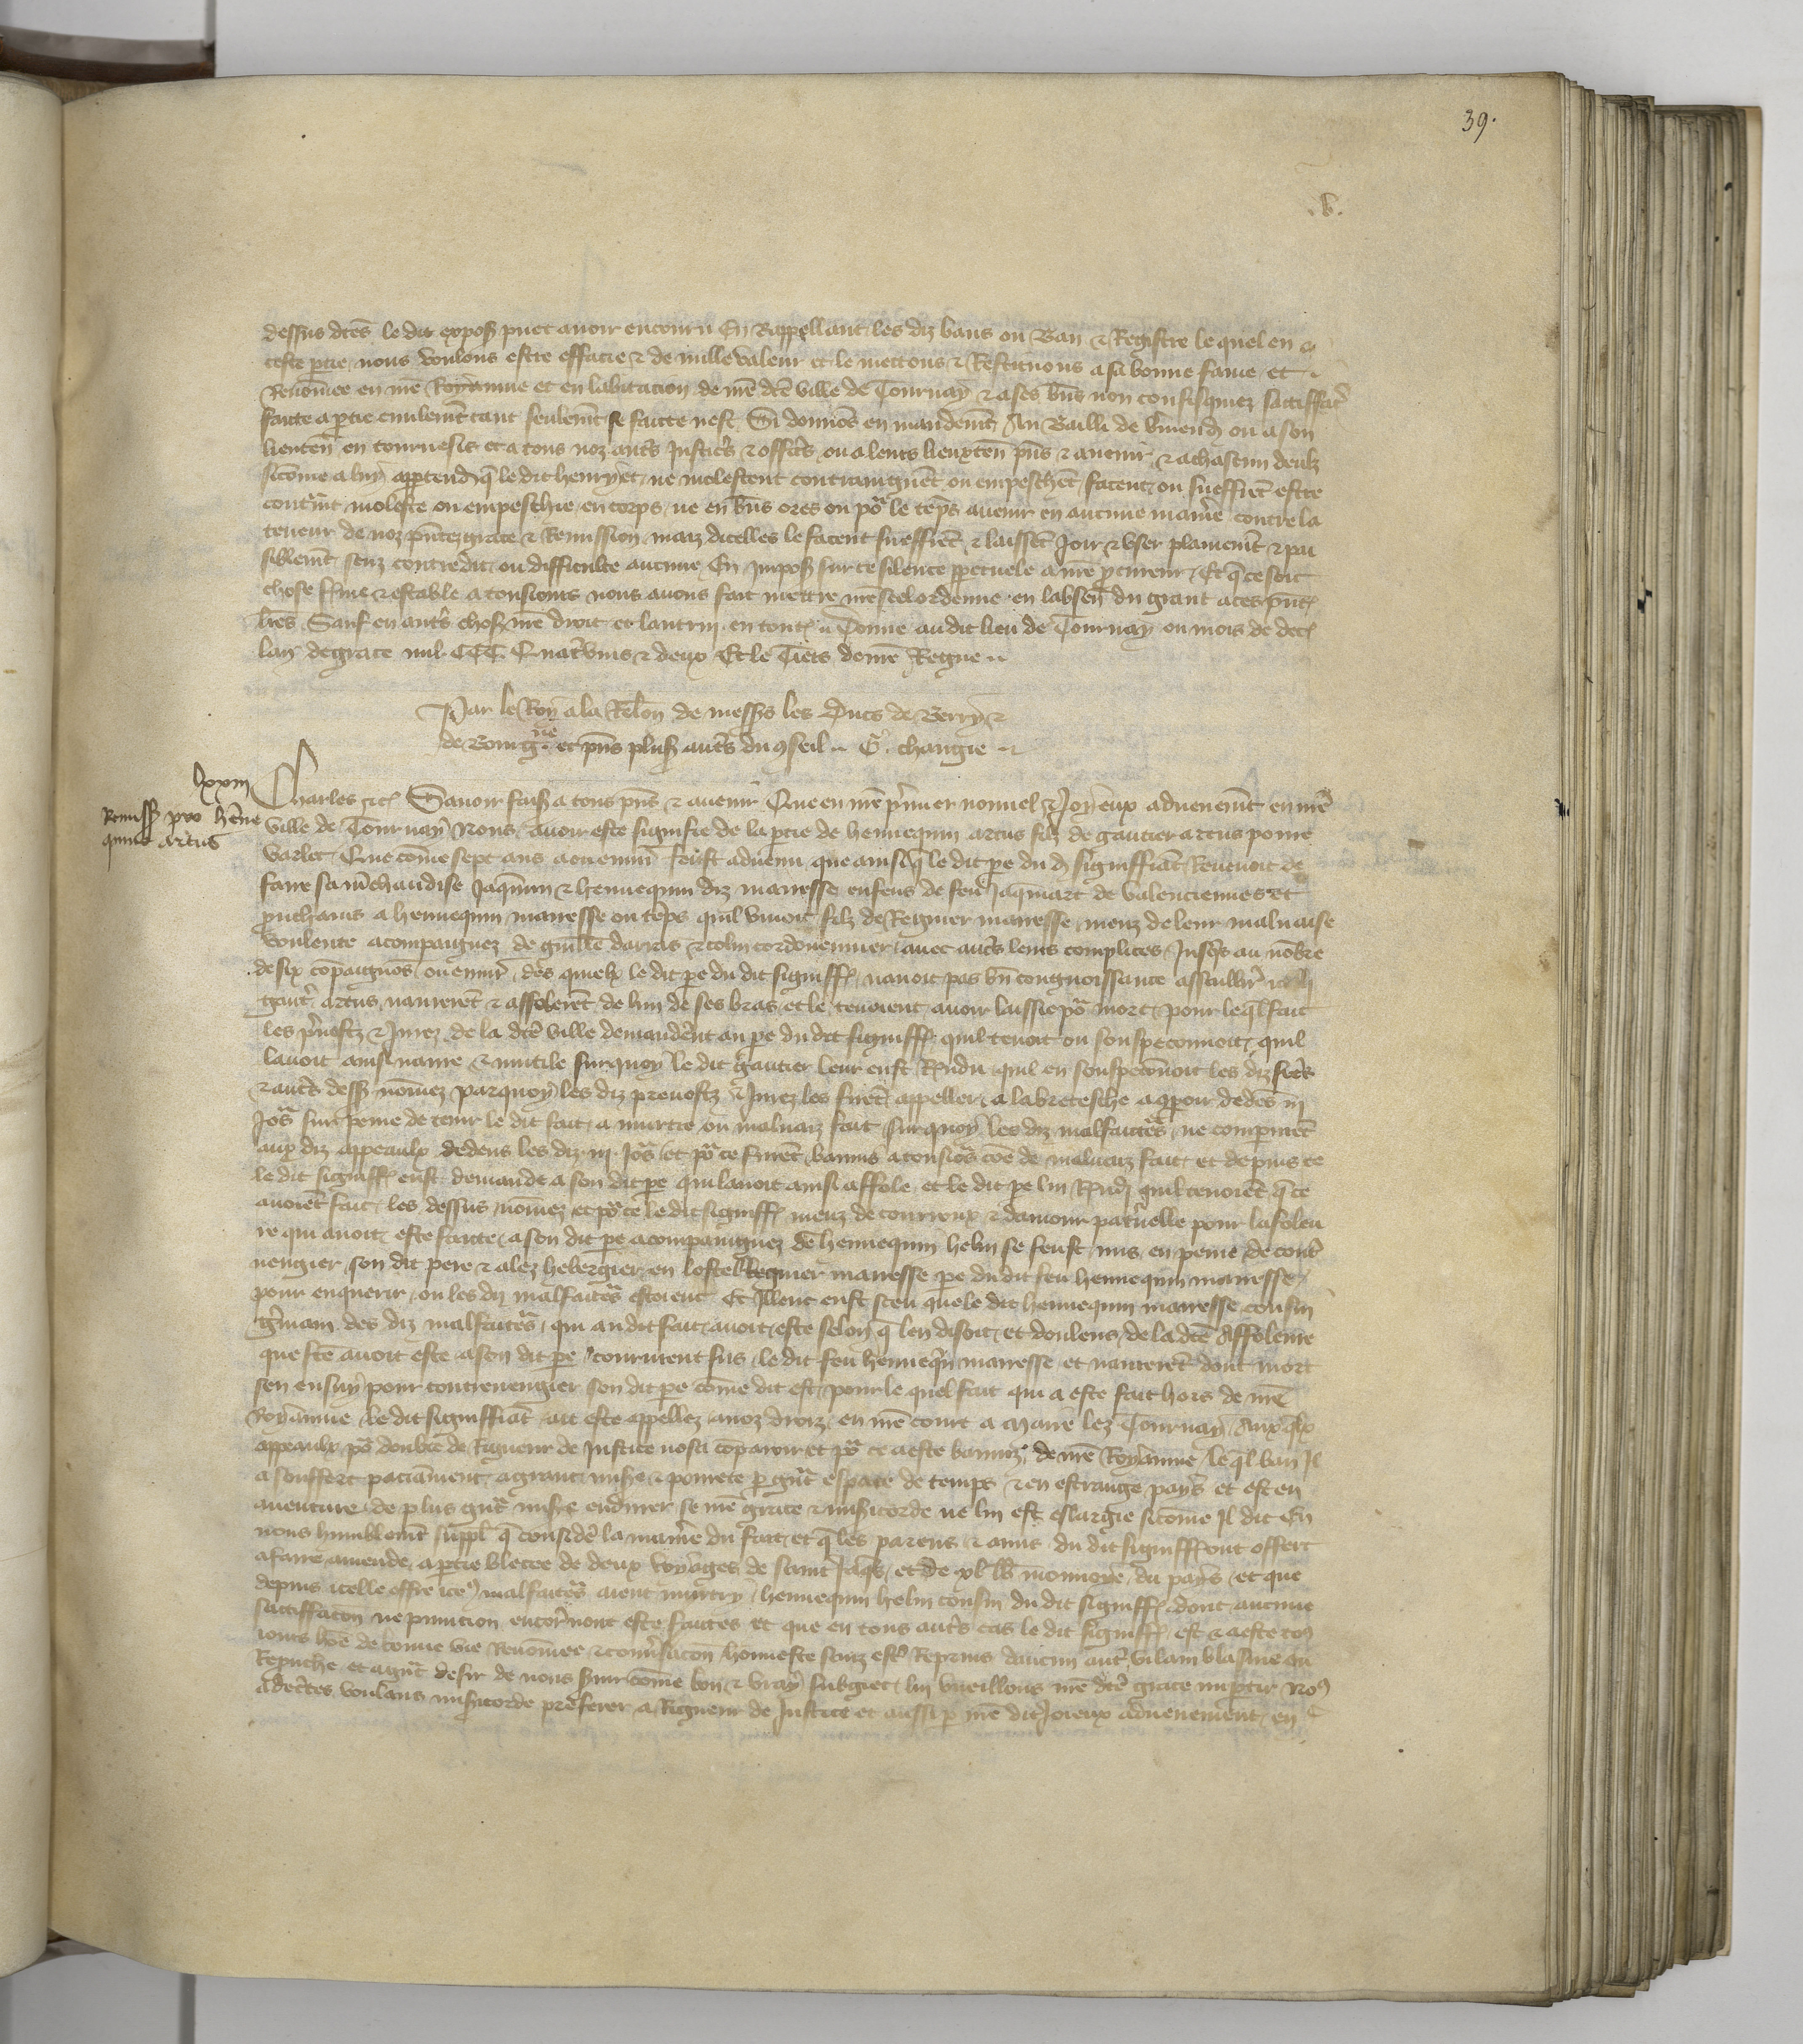 39.
.v.
dessus dc̃es le dit expos̃ puet avoir encouru En Rappellant les diz bans ou Ban & Registre le quel en
ceste p̃tie nous voulons estre effacie & de nulle valeur et le mettons & Restituons a sa bonne fame et
Renom̃ee en nr̃e Royaume et en labitacion de nr̃e dc̃e ville de Tournay & a ses biẽs non confisquiez sattisfac̃
faitte a p̃tie civilemẽt tant seulemẽt se faitte nest Si donnõs en mandemẽt Au Bailli de vermend̃ ou a son
lieuteñ en tournesis et a tous noz aut̃s Justic̃s & offic̃s ou a leurs lieuxteñ p̃ñs & avenir & a chascun deulz
sicõme a luy app̃tend̃ q̃ le dit henryet ne molestent contraingnẽt ou empeschẽt facent ou sueffrẽt estre
contr̃nt moleste ou empeschie en corps ne en biẽs ores ou põr le tẽps avenir en aucune manie contre la
teneur de noz p̃ñtez grace & Remission maiz dicelles le facent sueffrẽt & laissẽt Joir & user plainemẽt & pai
siblemẽt senz contredit ou difficulte aucune En Impos̃ sur ce silence p̃petuele a nr̃e p̃cureur Et q̃ ce soit
chose ferme & estable a tousiours nous avons fait mettre nr̃e scel ordenne en labsenc̃ du grant a ces p̃ñt̃
lr̃es Sauf en aut̃s chos̃ nr̃e droit et lautruy en tout̃ Donne au dit lieu de Tournay ou mois de dec̃
lan de grace mil CCC Quatrevins & deux Et le Tiers de nr̃e Regne
Par le Roy a la Relõn de mess̃s les Ducs de Berry &
de Bourg̃ne et p̃ñs plus̃ aut̃s du cõseil G. changie
lxxiii
Remiss̃ pro hẽne
quino artus
Charles etc̃ Savoir fais̃ a tous p̃ñs & avenir Que en nr̃e p̃mier nouvel & Joyeux advenemẽt en nr̃e
ville de Tournay Nous avoir este signifie de la p̃tie de hennequin artus filz de gautier artus povre
varlet Que cõme sept ans a ou environ feust advenu que ainsi q̃ le dit p̃e du d̃ signiffiãt Revenoit de
faire sa mc̃handise Jaquemin & hennequin diz manesse enfens de feu Jaquiart de valenciennes et
prouchains a hennequin manesse ou tẽps quil vivoit filz de Regnier manesse meuz de leur malvaise
voulente acompaignez de guill̃e darras & colin cordouennier avec aut̃s leurs complices Jusq̃s au nõbre
de six cõpaignons ou envir̃ des quielx le dit p̃e du dit signiff̃ navoit pas biẽ congnoissance assaillir̃
gaut̃ artus navrerẽt & affolerẽt de lun de ses bras et le tenoient avoir laissie põr mort pour le q̃l fait
les p̃vostz & Jurez de la dc̃e ville demanderẽt au p̃e du dit signiff̃ quil tenoit ou souspeconnoit quil
lavoit ainsi navre & mutile surquoy le dit gautier leur eust Rendu quil en souspecõnoit les diz freres
& aut̃s dess̃ nõmez parquoy les diz prevostz & Jurez les firẽt appeller a la bretesche a cõparoir dedẽs iij
Jõrs sur peine de tenir le dit fait a murtre ou malvaiz fait surquoy les diz malfaittẽrs ne comparurẽt
aux diz appeaulx dedens les diz iij Jõrs et põr ce furẽt bannis a tousiõrs cõe de malvaiz fait et depuis ce
le dit signiff̃ eust demande a son dit p̃e qui lavoit ainsi affole et le dit p̃e lui Rend̃ quil tenoiẽt q̃ ce
avoiẽt fait les dessus nõmez et põr ce le dit signiff̃ meuz de courroux & damour pat̃nelle pour lafoleu
re qui avoit este faitte a son dit p̃e acompaingnez de hennequin helin se feust mis en peine de cont̃
vengier son dit pere & alez hebergier en lostel Regnier manesse p̃e du dit feu hennequin manesse
pour enquerir ou les diz malfaittẽrs estoient Et Illenc eust sceu que le dit hennequin manesse cousin
g̃main des diz malfaittẽrs qui au dit fait avoit este selon q̃ len disoit et doulens de la dc̃e Affoleure
que fc̃e avoit este a son dit p̃e coururent sus le dit feu hennequĩ manesse et navrerẽt dont mort
sen ensuy pour contrevengier son dit p̃e cõme dit est pour le quel fait qui a este fait hors de nr̃e
Royaume le dit signiffiãt ait este appellez a noz droiz en nr̃e court a Maire lez Tournay Aux q̃lx
appeaulx põr doubte de Rigueur de Justice nosa cõparoir et põr ce a este banniz de nr̃e Royaume le q̃l ban Il
a souffert paciãment a grant mis̃e & povrete p̃ gñt espace de temps & en estrange pays et est en
aventure de plus gñt mis̃e endurer se nr̃e grace & mis̃icorde ne lui est eslargie sicõme Il dit En
nous humblemẽt suppl̃ q̃ consider̃ la maniere du fait et q̃ les parens & amis du dit signiff̃ ont offert
a faire amende a p̃tie blecee de deux voyages de saint Jaq̃s et de xl lb̃ monnoye du pays et que
depuis icelle offre iceulx malfaittẽrs aient murtry hennequin helin cousin du dit signiff̃ dont aucune
sattisfacõn ne punicion encores nont este faittes et que en tous aut̃s cas le dit signiff̃ est & a este tous
iours hõe de bonne vie Renõmee & convers̃acõn honneste senz estr̃e Repris daucun aut̃ vilain blasme ou
Repruche et a gñt desir de nous servir cõme bon & vray subgiet lui vueillons nr̃e dc̃e grace imp̃tir Nous
adecertes voulans mis̃icorde preferer a Rigueur de Justice et aussi p̃ nr̃e dit Joieux advenement en